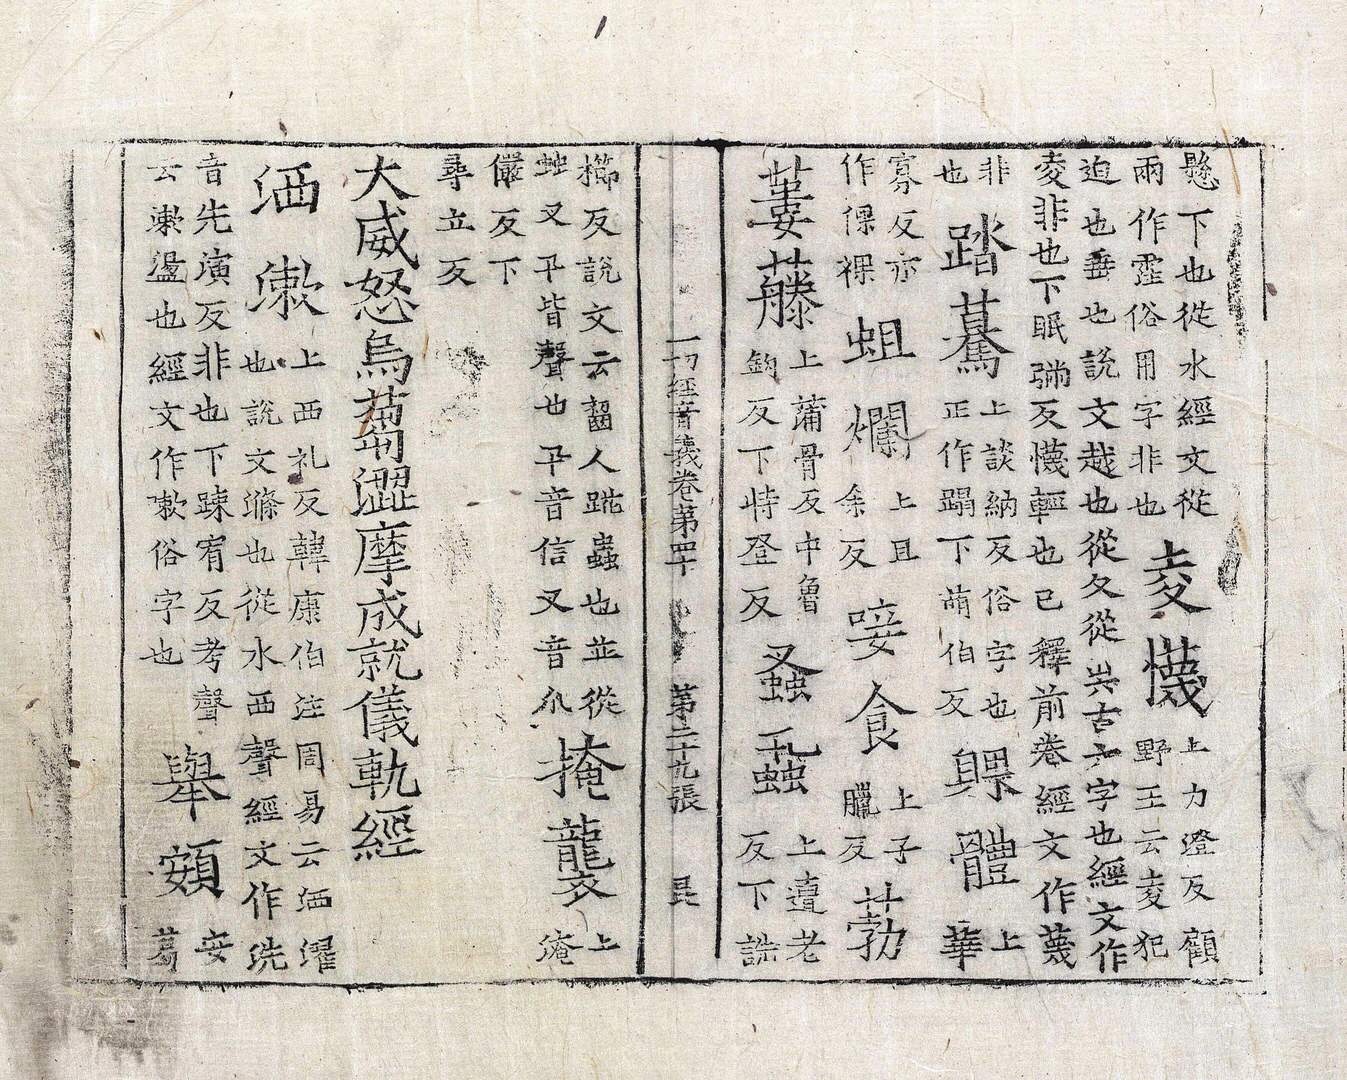 懸下也從水經文從
雨作霔俗用字非也
夌懱
上力澄反顧
野王云夌犯
迫也垂也說文越也從夂從𡴆古六字也經文作
夌非也下眠彌反懱輕也已釋前卷經文作蔑
非
也
踏驀
上談納反俗字也
正作蹋下萌伯反
躶體
上
華
寡反亦
作倮裸
蛆爛
上且
余反
唼食
上子
臘反
勃
蔞藤
上蒲骨反中魯
鉤反下特登反
蚤蝨
上遭老
反下詵
一切經音義卷第四十 第二十九張
櫛反說文云齧人跳蟲也並從
䖵叉卂皆聲也卂音信叉音爪
掩襲
上
淹
儼反下
尋立反
大威怒烏蒭澀摩成就儀軌經
洒漱
上西礼反韓康伯注周易云洒濯
也說文滌也從水西聲經文作洗
音先演反非也下踈宥反考聲
云漱盪也經文作嗽俗字也
擧頞
安
葛